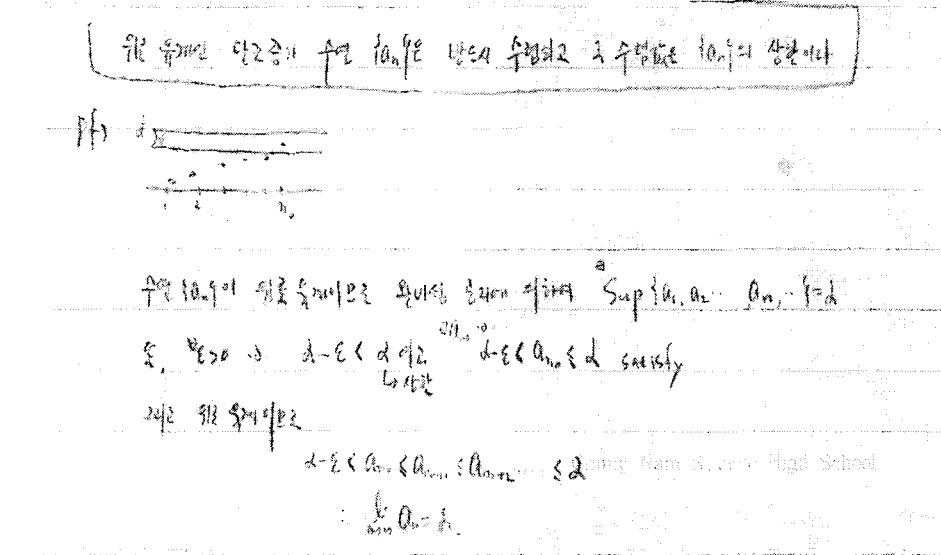 위로 유계인 단조증가 수열 {aₙ}은 반드시 수렴하고 그 수렴값은 {aₙ}의 상한이다
pf) α
1 2 n₀
수열 {aₙ}이 위로 유계이므로 완비성 공리에 의하여 Sup{a₁, a₂ ⋯ aₙ, ⋯}=α
또, ∀ε>0 ⇒ α-ε < α 이고 ∃aₙ₀ α-ε < aₙ₀ ≤ α satisfy
↳ 상한
그리고 위로 유계이므로
α-ε < aₙ₀ ≤ aₙ₀₊₁ ≤ aₙ₀₊₂ ≤ α
: lim aₙ = α.
High School